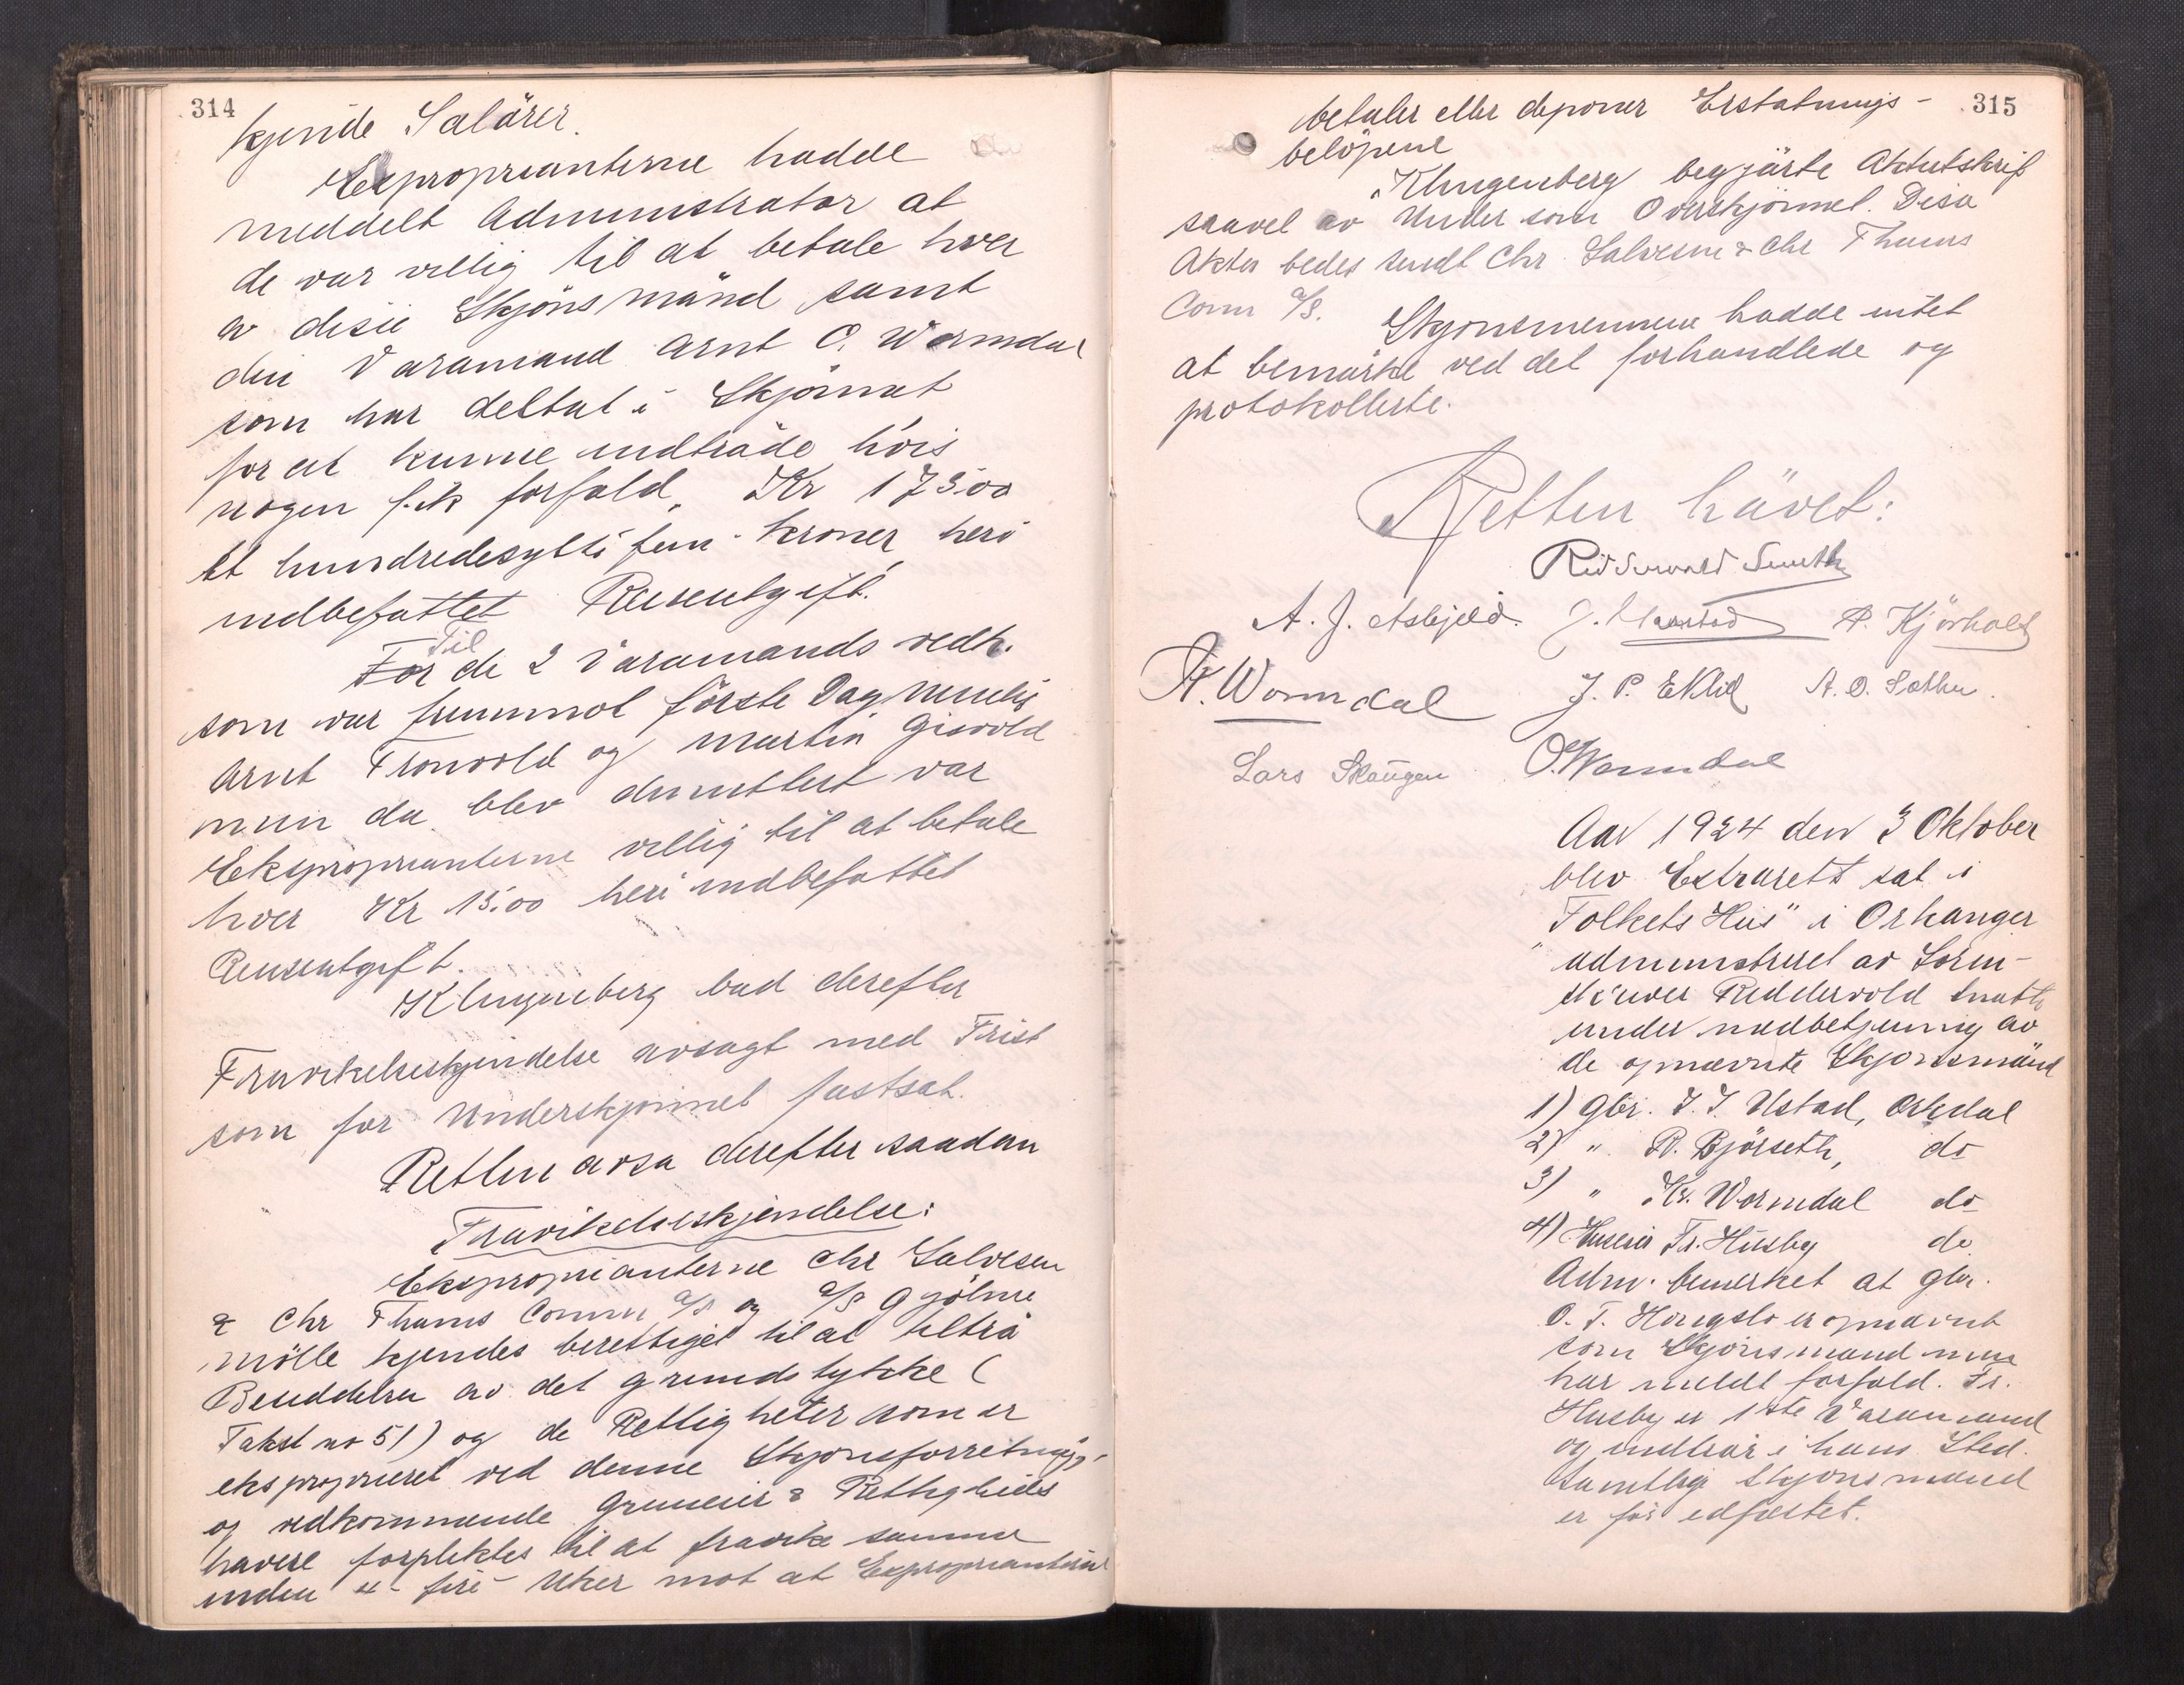 314
kjende Salärer.
Expropriianterne hadde
meddelt Administrator at
de var villig til at betale hver
av disse Skjönsmänd samt
den Varamand Arnt O. Wormdal
som har deltat i Skjönnet
for at kunne indträde hvis
nogen fik forfald, Kr 175.00
et hundredesytti fem - kroner heri
indbefattet Reiseutgift.
Til
For de 2 Varamænds vedk.
som var fremmöt förste Dag nemlig
Arnt Tronvold og Martin Gisvold
men da blev dimittert var
Ekspropriianterne villig til at betale
hver Kr 15.00 heri indbefattet
Reiseutgift.
Klingenberg bad derefter
Fravikelseskjendelse avsagt med Frist
som for Underskjönnet fastsat.
Retten avsa derefter saadan
Fravikelseskjendelse:
Ekspropriianterne Chr Salvesen
& Chr Thams Comm A/S og A/S Gjölme
mölle kjendes berettiget til at tiltræ
Besiddelsen av det grundstykke (
Takst no 51) og de Rettigheter som er
ekspropriert ved denne Skjönsforretning,
og vedkommende Grundeier & Rettigheds
havere forpliktes til at fravike samme
inden 4 - fire - Uker mot at Expropriianterne
315
betaler eller deponer Erstatnings-
belöpene
Klingenberg begjärte Aktutskrift
saavel av Under som Overskjönnet. Disse
Akter bedes sendt Chr. Salvesen & Chr Thams
Comm A/S.
Skjönsmennene hadde intet
at bemärke ved det forhandlede og
protokollerte.
Retten hävet:
Ridderwold Smith
A. J. Asbjeld. J. Kjörholt
K. Wormdal J. P. Eklid A. O. Sother.
Lars Skaugen O. Wormdal
Aar 1924 den 3 Oktober
blev Extrarett sat i
"Folkets Hus" i Orkanger
administreret av Soren-
skriver Riddervold Smith
under medbetjening av
de opnævnte Skjønsmänd
1) Gbr. J. J. Ustad, Orkdal
2) " P. Björseth, do
3) " Kr. Wormdal do
4) Huseier Fr. Husby do
Adm. bemerket at gbr.
O. T. Hongslo er opnævnt
som Skjönsmand men
har meldt forfald. Fr.
Husby er 1ste Varamand
og indtrær i hans Sted.
Samtlige Skjönsmænd
er før edfæstet.